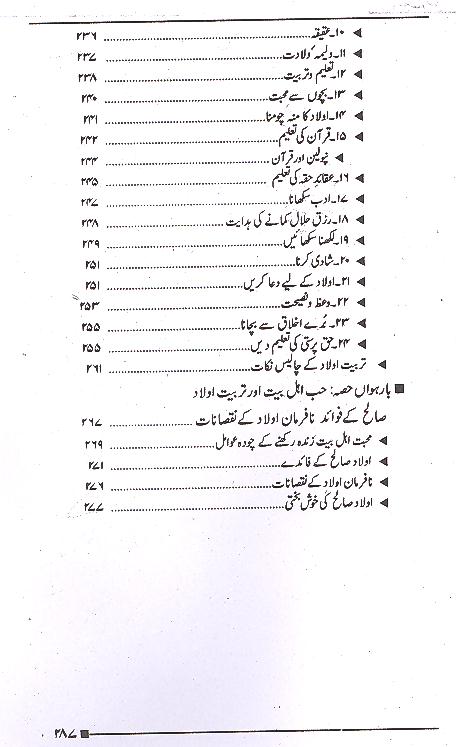 ◄ ۱۰۔عقیقہ ........ ۲۳۶
◄ ۱۱۔ولیمہ ٔ ولادت ........ ۲۳۷
◄ ۱۲۔تعلیم وتربیت ........ ۲۳۸
◄ ۱۳۔بچوں سے محبت ........ ۲۴۰
◄ ۱۴۔اولاد کا منہ چومنا ........ ۲۴۱
◄ ۱۵۔قرآن کی تعلیم ........ ۲۴۲
◄ نپولین اور قرآن ........ ۲۴۴
◄ ۱۶۔عقائدِ حقہ کی تعلیم ........ ۲۴۵
◄ ۱۷۔ادب سکھانا ........ ۲۴۷
◄ ۱۸۔رزق حلال کمانے کی ہدایت ........ ۲۴۸
◄ ۱۹۔لکھنا سکھائیں ........ ۲۴۹
◄ ۲۰۔شادی کرنا ........ ۲۵۱
◄ ۲۱۔اولاد کے لیے دعا کریں ........ ۲۵۱
◄ ۲۲۔وعظ ونصیحت ........ ۲۵۳
◄ ۲۳۔ بُرے اخلاق سے بچانا ........ ۲۵۵
◄ ۲۴۔حق پرستی کی تعلیم دیں ........ ۲۵۵
◄ تربیت اولاد کے چالیس نکات ........ ۲۶۱
■ بارہواں حصہ: حب اہل بیت اور تربیت اولاد
صالح کے فوائد نافرمان اولاد کے نقصانات ........ ۲۶۷
◄ محبت اہل بیت زندہ رکھنے کے چودہ عوامل ........ ۲۶۹
◄ اولاد صالح کے فائدے ........ ۲۷۱
◄ نافرمان اولاد کے نقصانات ........ ۲۷۶
◄ اولاد صالح کی خوش بختی ........ ۲۷۷
۲۸۷